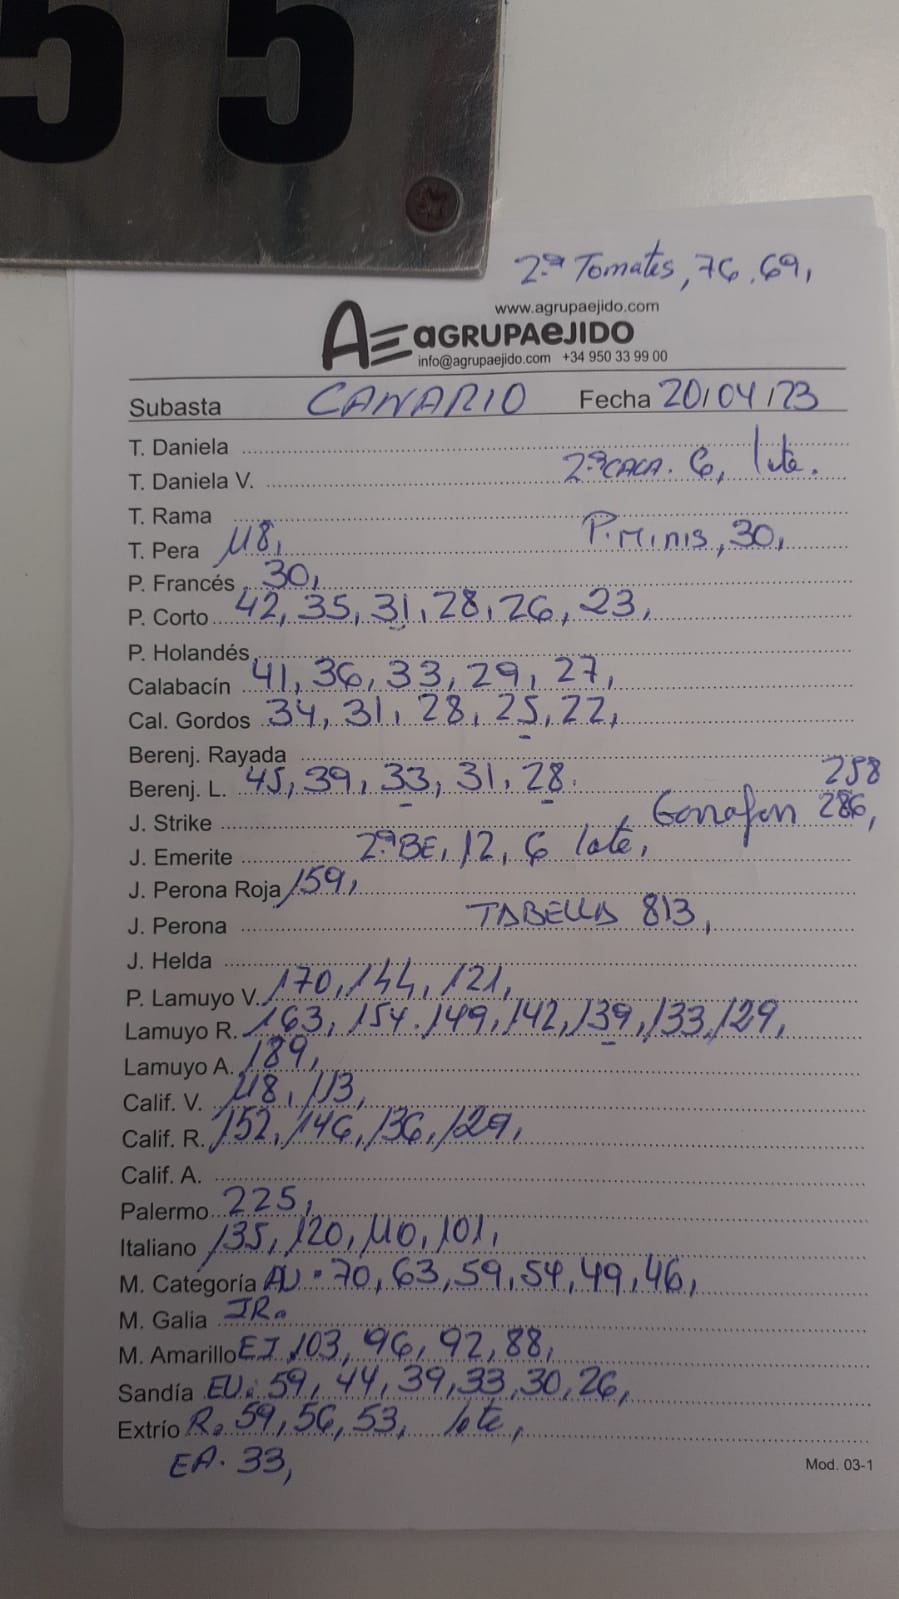 55
2.ª Tomates, 76, 69,
www.agrupaejido.com
AE aGRUPAeJIDO
info@agrupaejido.com +34 950 33 99 00
Subasta CANARIO Fecha 20/04/23
T. Daniela
T. Daniela V. 2.ª CACA. 6, lote.
T. Rama
T. Pera 118, P. Minis, 30,
P. Francés 30,
P. Corto 42, 35, 31, 28, 26, 23,
P. Holandés
Calabacín 41, 36, 33, 29, 27,
Cal. Gordos 34, 31, 28, 25, 22,
Berenj. Rayada
Berenj. L. 45, 39, 33, 31, 28. 258
J. Strike 286,
J. Emerite 2.ª BE, 12, 6 lote,
J. Perona Roja 159,
J. Perona TABELLA 813,
J. Helda
P. Lamuyo V. 170, 144, 121,
Lamuyo R. 163, 154. 149, 142, 139, 133, 129,
Lamuyo A. 189,
Calif. V. 118, 113,
Calif. R. 152, 146, 136, 129,
Calif. A.
Palermo 225,
Italiano 135, 120, 110, 101,
M. Categoría 70, 63, 59, 54, 49, 46,
M. Galia IR.
M. Amarillo EJ. 103, 96, 92, 88,
Sandía EU: 59, 44, 39, 33, 30, 26,
Extrío R. 59, 56, 53, lote,
EA. 33,
Mod. 03-1